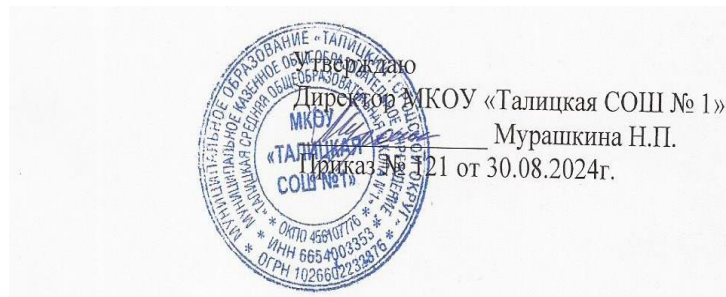 Утверждаю
Директор МКОУ «Талицкая СОШ № 1»
Мурашкина Н.П.
Приказ № 121 от 30.08.2024г.
МУНИЦИПАЛЬНОЕ ОБРАЗОВАНИЕ «ТАЛИЦКИЙ ГОРОДСКОЙ ОКРУГ»
МУНИЦИПАЛЬНОЕ КАЗЕННОЕ ОБЩЕОБРАЗОВАТЕЛЬНОЕ УЧРЕЖДЕНИЕ
«ТАЛИЦКАЯ СРЕДНЯЯ ОБЩЕОБРАЗОВАТЕЛЬНАЯ ШКОЛА №1»
МКОУ
«ТАЛИЦКАЯ
СОШ №1»
ИНН 6654003353
ОГРН 1026602232876